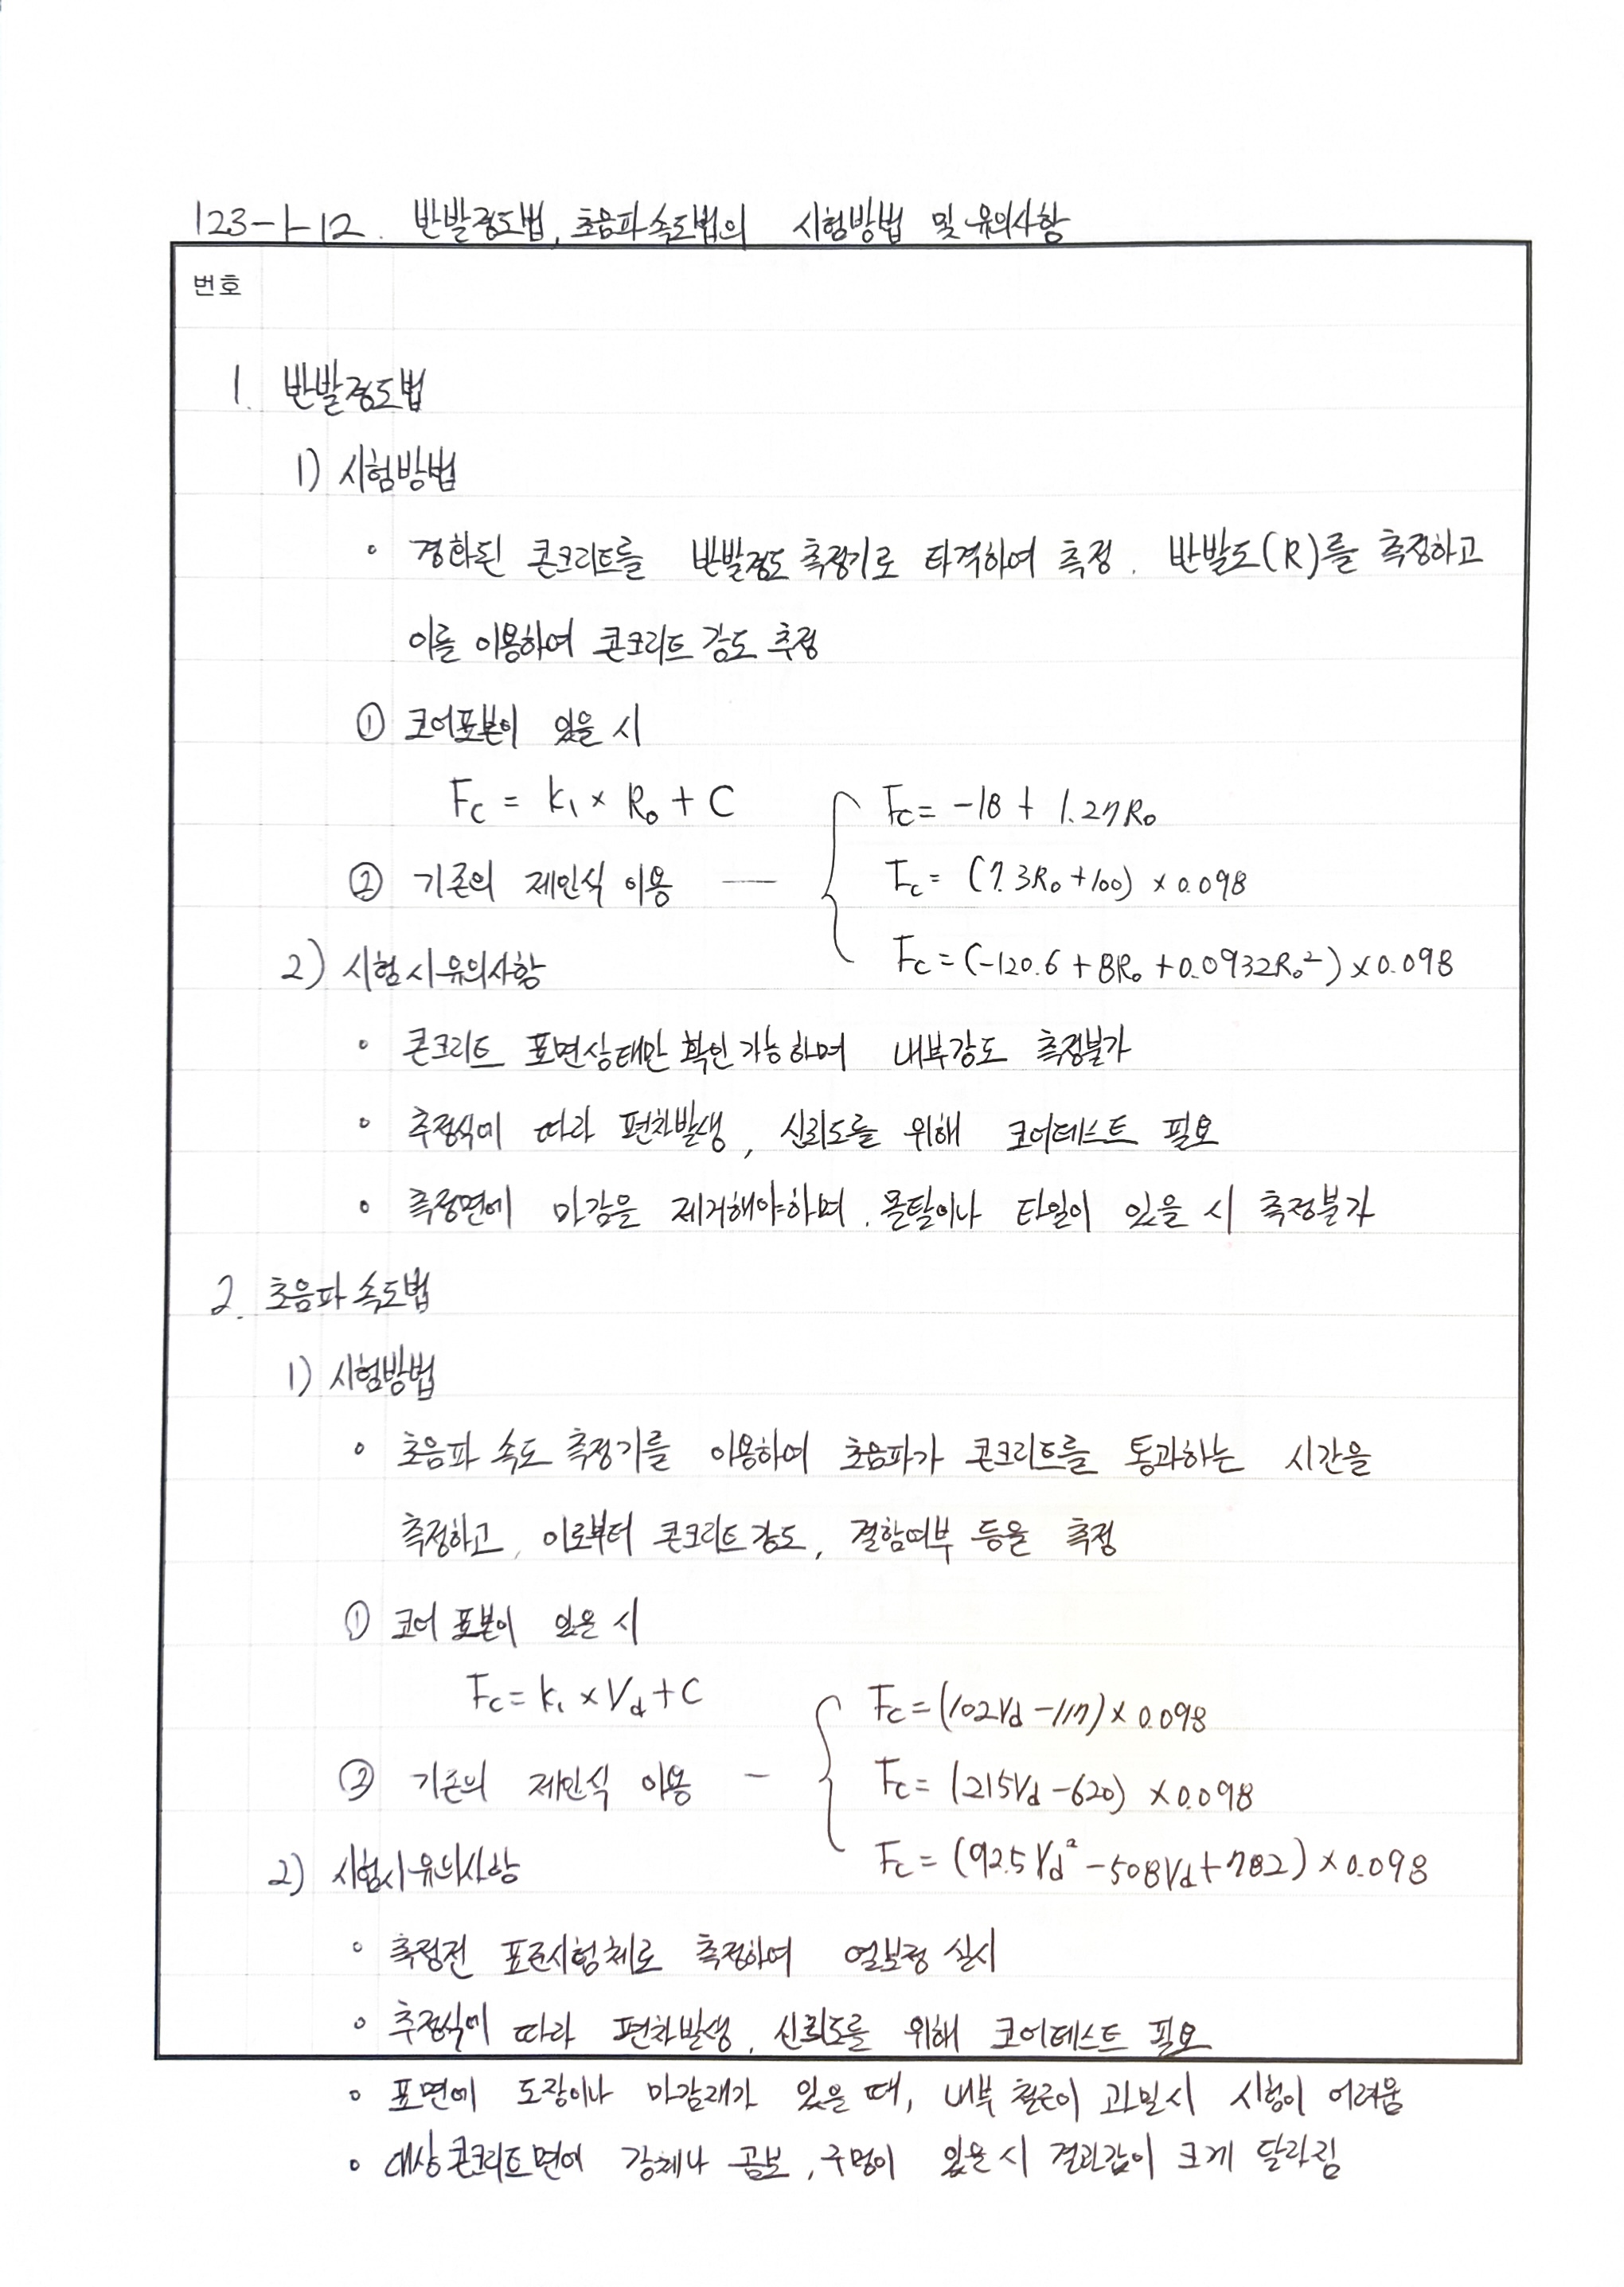 123-1-12. 반발경도법, 초음파 속도법의 시험방법 및 유의사항
번호
1. 반발경도법
1) 시험방법
◦ 경화된 콘크리트를 반발경도 측정기로 타격하여 측정. 반발도(R)를 측정하고
이를 이용하여 콘크리트 강도 추정
① 코어표본이 있을 시
Fc = k₁ × R₀ + C
Fc = -18 + 1.27R₀
② 기존의 제안식 이용 —
Fc = (7.3R₀ + 100) × 0.098
Fc = (-120.6 + 8R₀ + 0.0932R₀²) × 0.098
2) 시험시 유의사항
◦ 콘크리트 표면상태만 확인 가능하며 내부강도 측정불가
◦ 추정식에 따라 편차발생, 신뢰도를 위해 코어테스트 필요
◦ 측정면에 마감을 제거해야하며, 몰탈이나 타일이 있을 시 측정불가
2. 초음파 속도법
1) 시험방법
◦ 초음파 속도 측정기를 이용하여 초음파가 콘크리트를 통과하는 시간을
측정하고, 이로부터 콘크리트 강도, 결함여부 등을 측정
① 코어 표본이 있을 시
Fc = k₁ × Vd + C
Fc = (102Vd - 117) × 0.098
② 기존의 제안식 이용 —
Fc = (215Vd - 620) × 0.098
Fc = (92.5Vd² - 508Vd + 782) × 0.098
2) 시험시 유의사항
◦ 측정전 표준시험체로 측정하여 영보정 실시
◦ 추정식에 따라 편차발생, 신뢰도를 위해 코어테스트 필요
◦ 표면에 도장이나 마감재가 있을 때, 내부 철근이 과밀시 시험이 어려움
◦ 대상 콘크리트면에 곰보, 구멍이 있을 시 결과값이 크게 달라짐